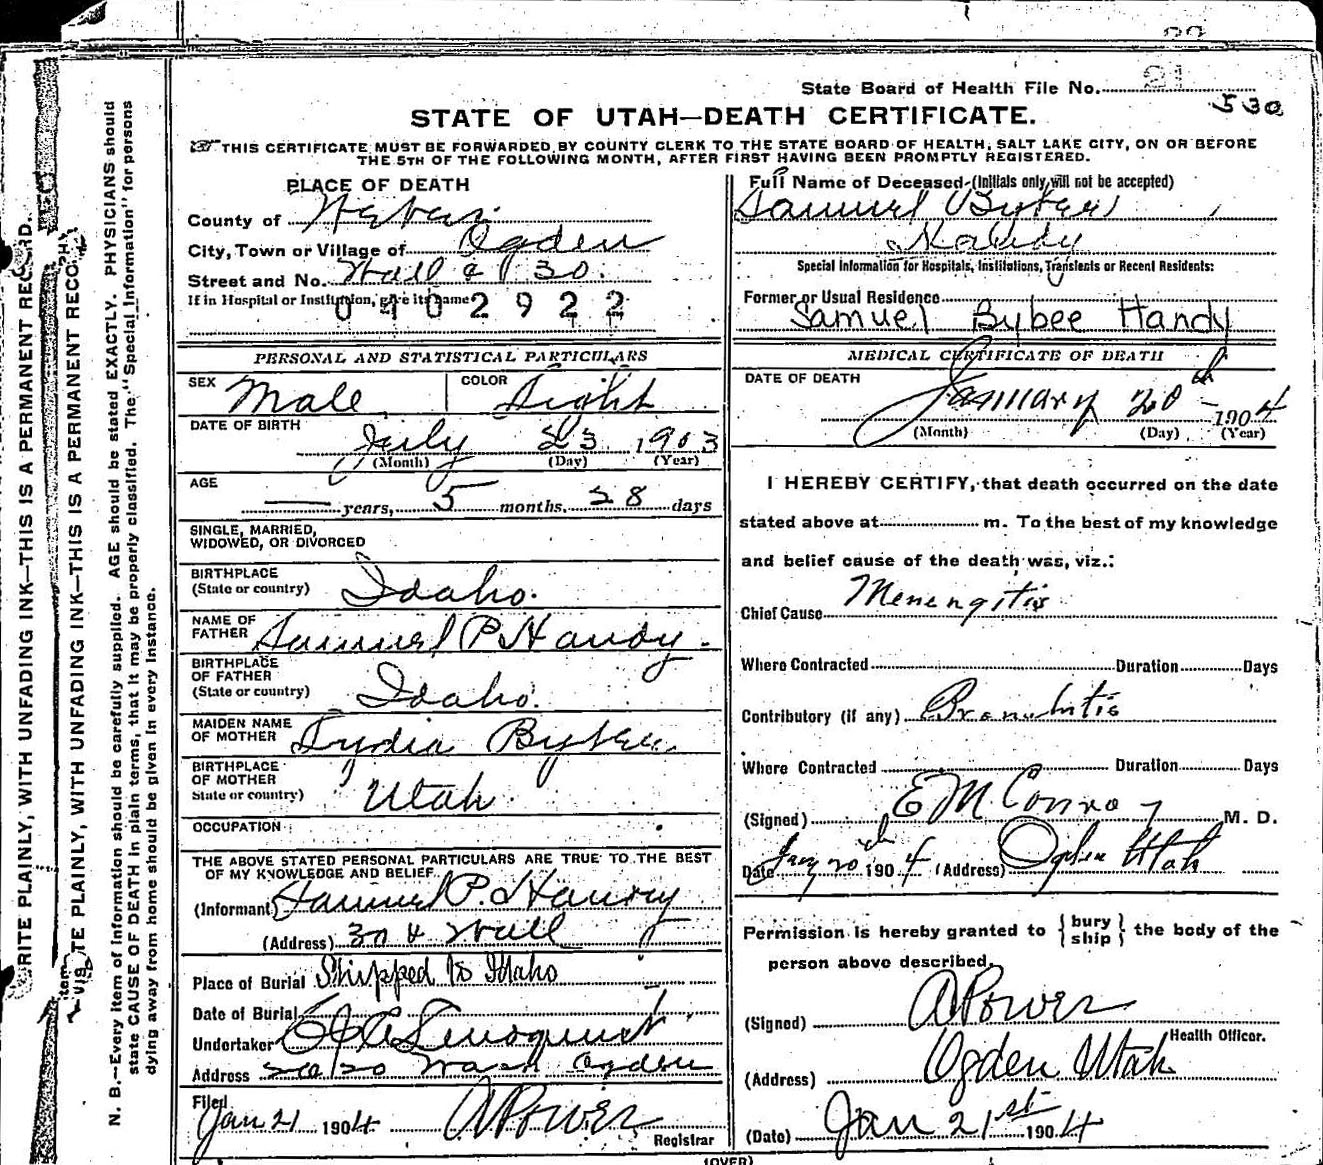 State Board of Health File No. 21
530
STATE OF UTAH—DEATH CERTIFICATE.
THIS CERTIFICATE MUST BE FORWARDED BY COUNTY CLERK TO THE STATE BOARD OF HEALTH, SALT LAKE CITY, ON OR BEFORE
THE 5TH OF THE FOLLOWING MONTH, AFTER FIRST HAVING BEEN PROMPTLY REGISTERED.
PLACE OF DEATH
County of Weber
City, Town or Village of Ogden
Street and No. Wall & 30
If in Hospital or Institution, give its name
0402922
PERSONAL AND STATISTICAL PARTICULARS
SEX Male COLOR Light
DATE OF BIRTH July 23 1903
(Month) (Day) (Year)
AGE
years, 5 months, 28 days
SINGLE, MARRIED,
WIDOWED, OR DIVORCED
BIRTHPLACE
(State or country) Idaho.
NAME OF
FATHER Samuel P. Handy.
BIRTHPLACE
OF FATHER
(State or country) Idaho.
MAIDEN NAME
OF MOTHER Lydia Bybee
BIRTHPLACE
OF MOTHER
State or country) Utah
OCCUPATION
THE ABOVE STATED PERSONAL PARTICULARS ARE TRUE TO THE BEST
OF MY KNOWLEDGE AND BELIEF
(Informant) Samuel P. Handy
(Address) 30 & Wall
Place of Burial Shipped to Idaho
Date of Burial
Undertaker
Address Wash Ogden
Filed
Jan 21 1904 A Power
Registrar
Full Name of Deceased (Initials only will not be accepted)
Samuel Bybee
Handy
Special Information for Hospitals, Institutions, Transients or Recent Residents:
Former or Usual Residence
Samuel Bybee Handy
MEDICAL CERTIFICATE OF DEATH
DATE OF DEATH
January 20th 1904
(Month) (Day) (Year)
I HEREBY CERTIFY, that death occurred on the date
stated above at m. To the best of my knowledge
and belief cause of the death was, viz.:
Chief Cause Menengitis
Where Contracted Duration Days
Contributory (if any) Bronchitis
Where Contracted Duration Days
(Signed) E M Conroy M. D.
Date Jany 20th 1904 (Address) Ogden Utah
Permission is hereby granted to {bury
ship} the body of the
person above described.
(Signed) A Power
Health Officer.
(Address) Ogden Utah
(Date) Jan 21st 1904
(OVER)
WRITE PLAINLY, WITH UNFADING INK—THIS IS A PERMANENT RECORD.
WRITE PLAINLY, WITH UNFADING INK—THIS IS A PERMANENT RECO
N. B.—Every item of information should be carefully supplied. AGE should be stated EXACTLY. PHYSICIANS should
state CAUSE OF DEATH in plain terms, that it may be properly classified. The "Special Information" for persons
dying away from home should be given in every instance.